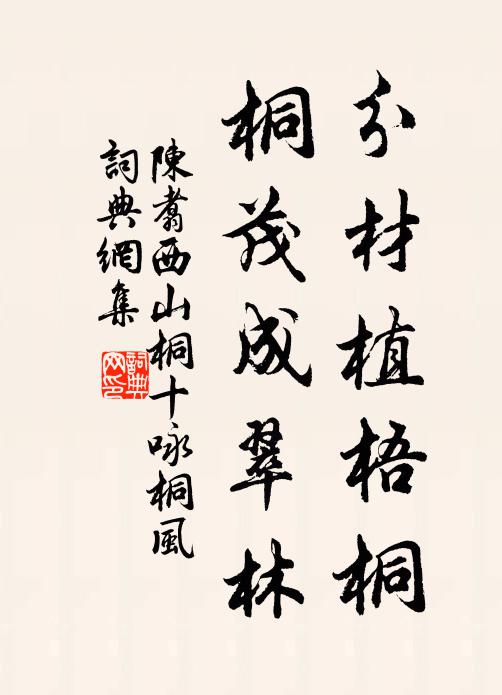 分材植梧桐
桐茂成翠林
陳翥西山桐十咏桐風
詞典網集
詞典網印